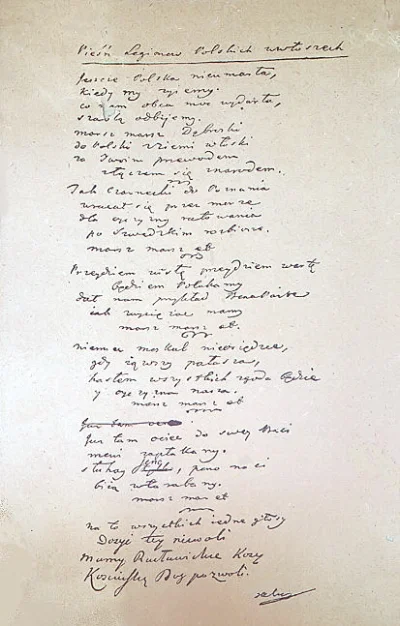 Pieśń Legionow Polskich we włoszech
Jeszcze Polska nieumarła,
kiedy my żyiemy.
co nam obca moc wydarła,
szablą odbijemy.
marsz marsz Dąbroski
do Polski z ziemi włoski
za Twoim przewodem
złączem się znarodem.
Jak Czarnecki do Poznania
wracał się przez morze
dla oyczyzny ratowania
po szwedzkim rozbiorze.
marsz marsz et
Przeydziem wisłę przeydziem wartę
Będziem Polakamy
dał nam przykład Bonaparte
jak zwyciężać mamy
marsz marsz et.
niemiec moskal nieosiędzie,
gdy iąwszy pałasza,
hasłem wszystkich zgoda będzie
y oyczyzna nasza.
marsz marsz et
Już tam
Już tam ociec do swey Basi
mówi zapłakany.
słuchay , pono nasi
biią w tarabany.
marsz marsz et
na to wszystkich iedne głosy
Dosyć tey niewoli
mamy Racławickie Kosy
Kosciuszkę Bóg pozwoli.